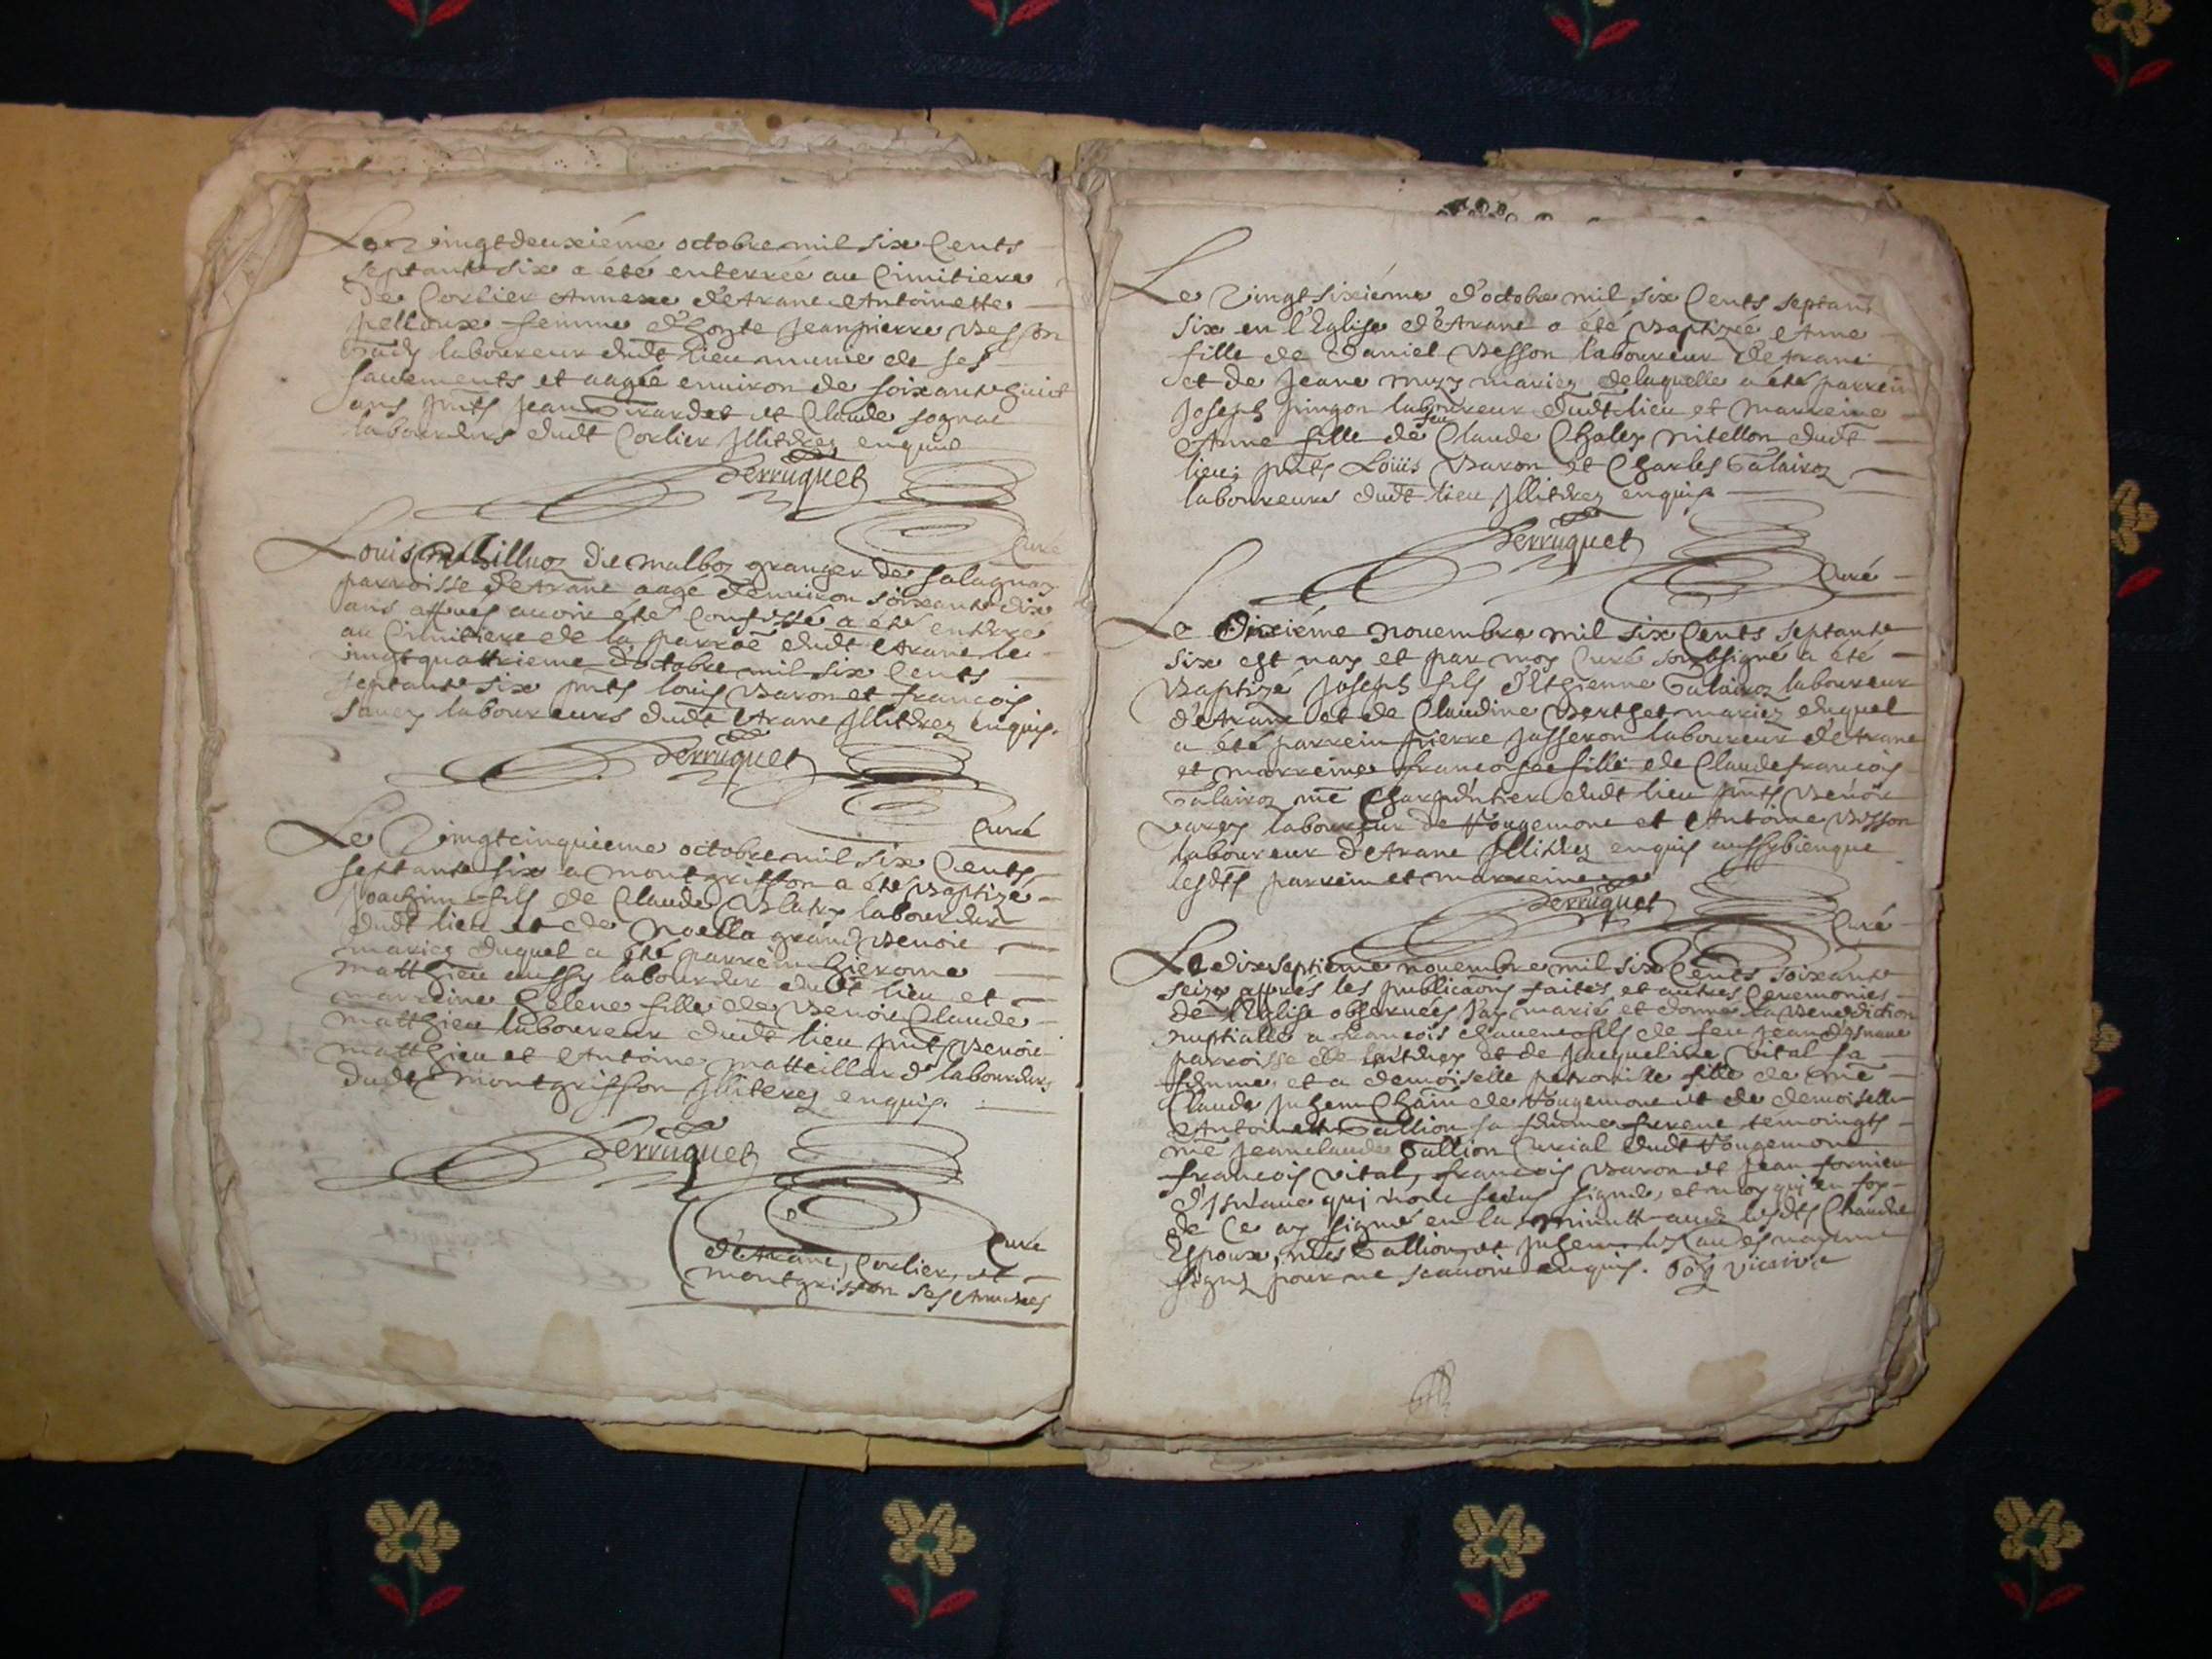 Le Vingtdeuxiéme octobre mil six Cents
septante six a été enterrée au Cimitiere
De Corlier Annexe d'Arane Antoinette
pelloux femme d'honte Jeanpierre Besson
laboureur dudt lieu munie de ses
sacements et aagée enuiron de soixante huict
ans pnts Jean Girardet et Claude
laboureurs dudt Corlier Illiterez enquis
Perruquet
Curé
Louis dit malboz granger de Salagnaz
parroisse d'Arane aagé d'enuiron soixante dix
ans appres auoir été Confessé a été enterré
au Cimitiere de la parroe dudt Arane le
vingtquattrieme d'octobre mil six Cents
septante six pnts louis Baron et francois
Sauey laboureurs dudt Arane Illiterez enquis.
Perruquet
Curé
Le Vingtcinquieme octobre mil six Cents
septante six a montgriffon a été Baptizé
Joachim fils de Claude laboureur
dudt lieu et de Noella grand Benoit
mariez duquel a été parrein hierome
matthieu aussy laboureur dudt lieu et
marreine helene fille de Benoit Claude
matthieu laboureur dudt lieu pnts Benoit
matthieu et Antoine matteillard laboureurs
dudt montgriffon Illiterez enquis.
Perruquet
Curé
d'Arane, Corlier, et
montgriffon ses Annexes
Le Vingtsixiéme d'octobre mil six Cents septante
six en l'Eglise d'Arane a été Baptizée Anne
fille de Daniel Besson laboureur d'Arane
et de Jeane muzy mariez delaquelle a été parrein
Joseph pingon laboureur dudt lieu et marreine
Anne fille de feu Claude Chaley mitellon dudt
lieu; pnts Loüis Baron et Charles Galairoz
laboureurs dudt lieu Illiterez enquis
Perruquet
Curé
Le Dixiéme nouembre mil six Cents septante
six est nay et par moy Curé soubsigné a été
Baptizé Joseph fils d'Ethienne Galairoz laboureur
d'Arane et de Claudine Berthet mariez duquel
a été parrein pierre Jasseron laboureur d'Arane
et marreine francoise fille de Claude francois
Galairoz me Charpentier dudt lieu pnts Benoit
Varey laboureur de Rougemont et Antoine Besson
laboureur d'Arane Illiterez enquis aussybienque
lesdts parrein et marreine
Perruquet
Curé
Le dixseptieme nouembre mil six Cents soixante
seize appres les publicaons faites et autres Ceremonies
de l'Eglise obseruées J'ay marié et donné la Benediction
nuptialle a francois chauent fils de feu Jean d'Isnaue
parroisse de et de Jacqueline Vital sa
femme, et a demoiselle petronille fille de me
Claude Juhem Chain de Rougemont et de demoiselle
Antoinette Gallion sa femme furent temoingts
me Jeanclaude Gallion Curial dudt Rougemont
francois Vital, francois Baron et Jean fornier
d'Isnaue qui n'ont sceus signé, et moy qui en foy
de Ce ay signé en la minutte auec lesdts
Espoux, mes Gallion, et Juhem les autres n'ayant
signé pour ne scauoir enquis. vicaire